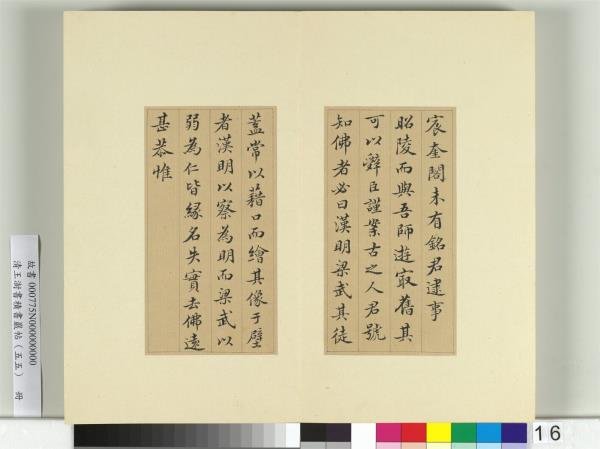 宸奎閣未有銘君逮事
昭陵而與吾師遊寂舊其
可以辭臣謹案古之人君號
知佛者必曰漢明梁武其徒
蓋常以藉口而繪其像于壁
者漢明以察為明而梁武以
弱為仁皆緣名失實去佛遠
甚恭惟
故書 000775N000000000
清王澍書積書巖帖（五五） 冊
16